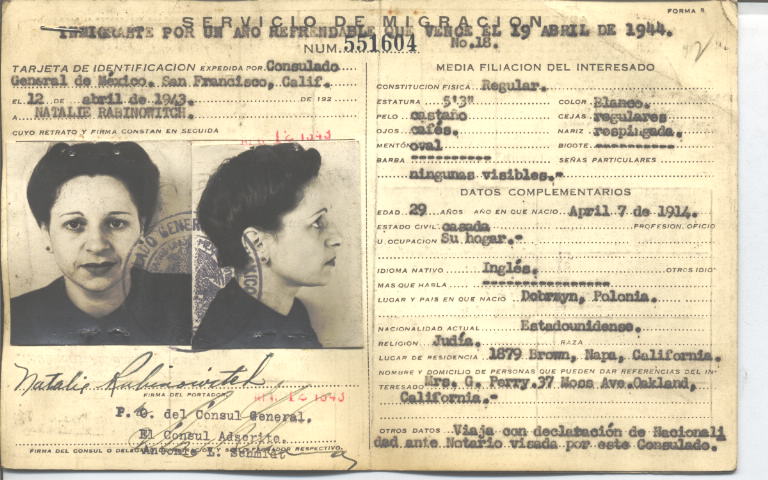 SERVICIO DE MIGRACION
FORMA 5
INMIGRANTE POR UN AÑO REFRENDABLE QUE VENCE EL 19 ABRIL DE 1944.
NUM. 551604
No.18.
TARJETA DE IDENTIFICACION EXPEDIDA POR Consulado
General de México. San Francisco, Calif.
EL 12 DE abril de 1943. DE 192
A NATALIE RABINOWITCH.
CUYO RETRATO Y FIRMA CONSTAN EN SEGUIDA
Natalie Rabinowitch
FIRMA DEL PORTADOR
P. O. del Consul General.
El Consul Adscrito.
Antonio L. Schmidt
MEDIA FILIACION DEL INTERESADO
CONSTITUCION FISICA Regular.
ESTATURA 5'3" COLOR Blanco.
PELO castaño CEJAS regulares
OJOS cafés. NARIZ respingada.
MENTÓN oval BIGOTE ----------
BARBA ---------- SEÑAS PARTICULARES
ningunas visibles.-
DATOS COMPLEMENTARIOS
EDAD 29 AÑOS AÑO EN QUE NACIO April 7 de 1914.
ESTADO CIVIL casada PROFESION, OFICIO
U OCUPACION Su hogar.-
IDIOMA NATIVO Inglés. OTROS IDIO-
MAS QUE HABLA ----------------
LUGAR Y PAIS EN QUE NACIO Dobrzyn, Polonia.
NACIONALIDAD ACTUAL Estadounidense.
RELIGION Judía. RAZA
LUGAR DE RESIDENCIA 1879 Brown, Napa, California.
NOMBRE Y DOMICILIO DE PERSONAS QUE PUEDEN DAR REFERENCIAS DEL IN-
TERESADO Mrs. G. Perry. 37 Moss Ave. Oakland,
California.-
OTROS DATOS Viaja con declaración de Nacionali
dad ante Notario visada por este Consulado.